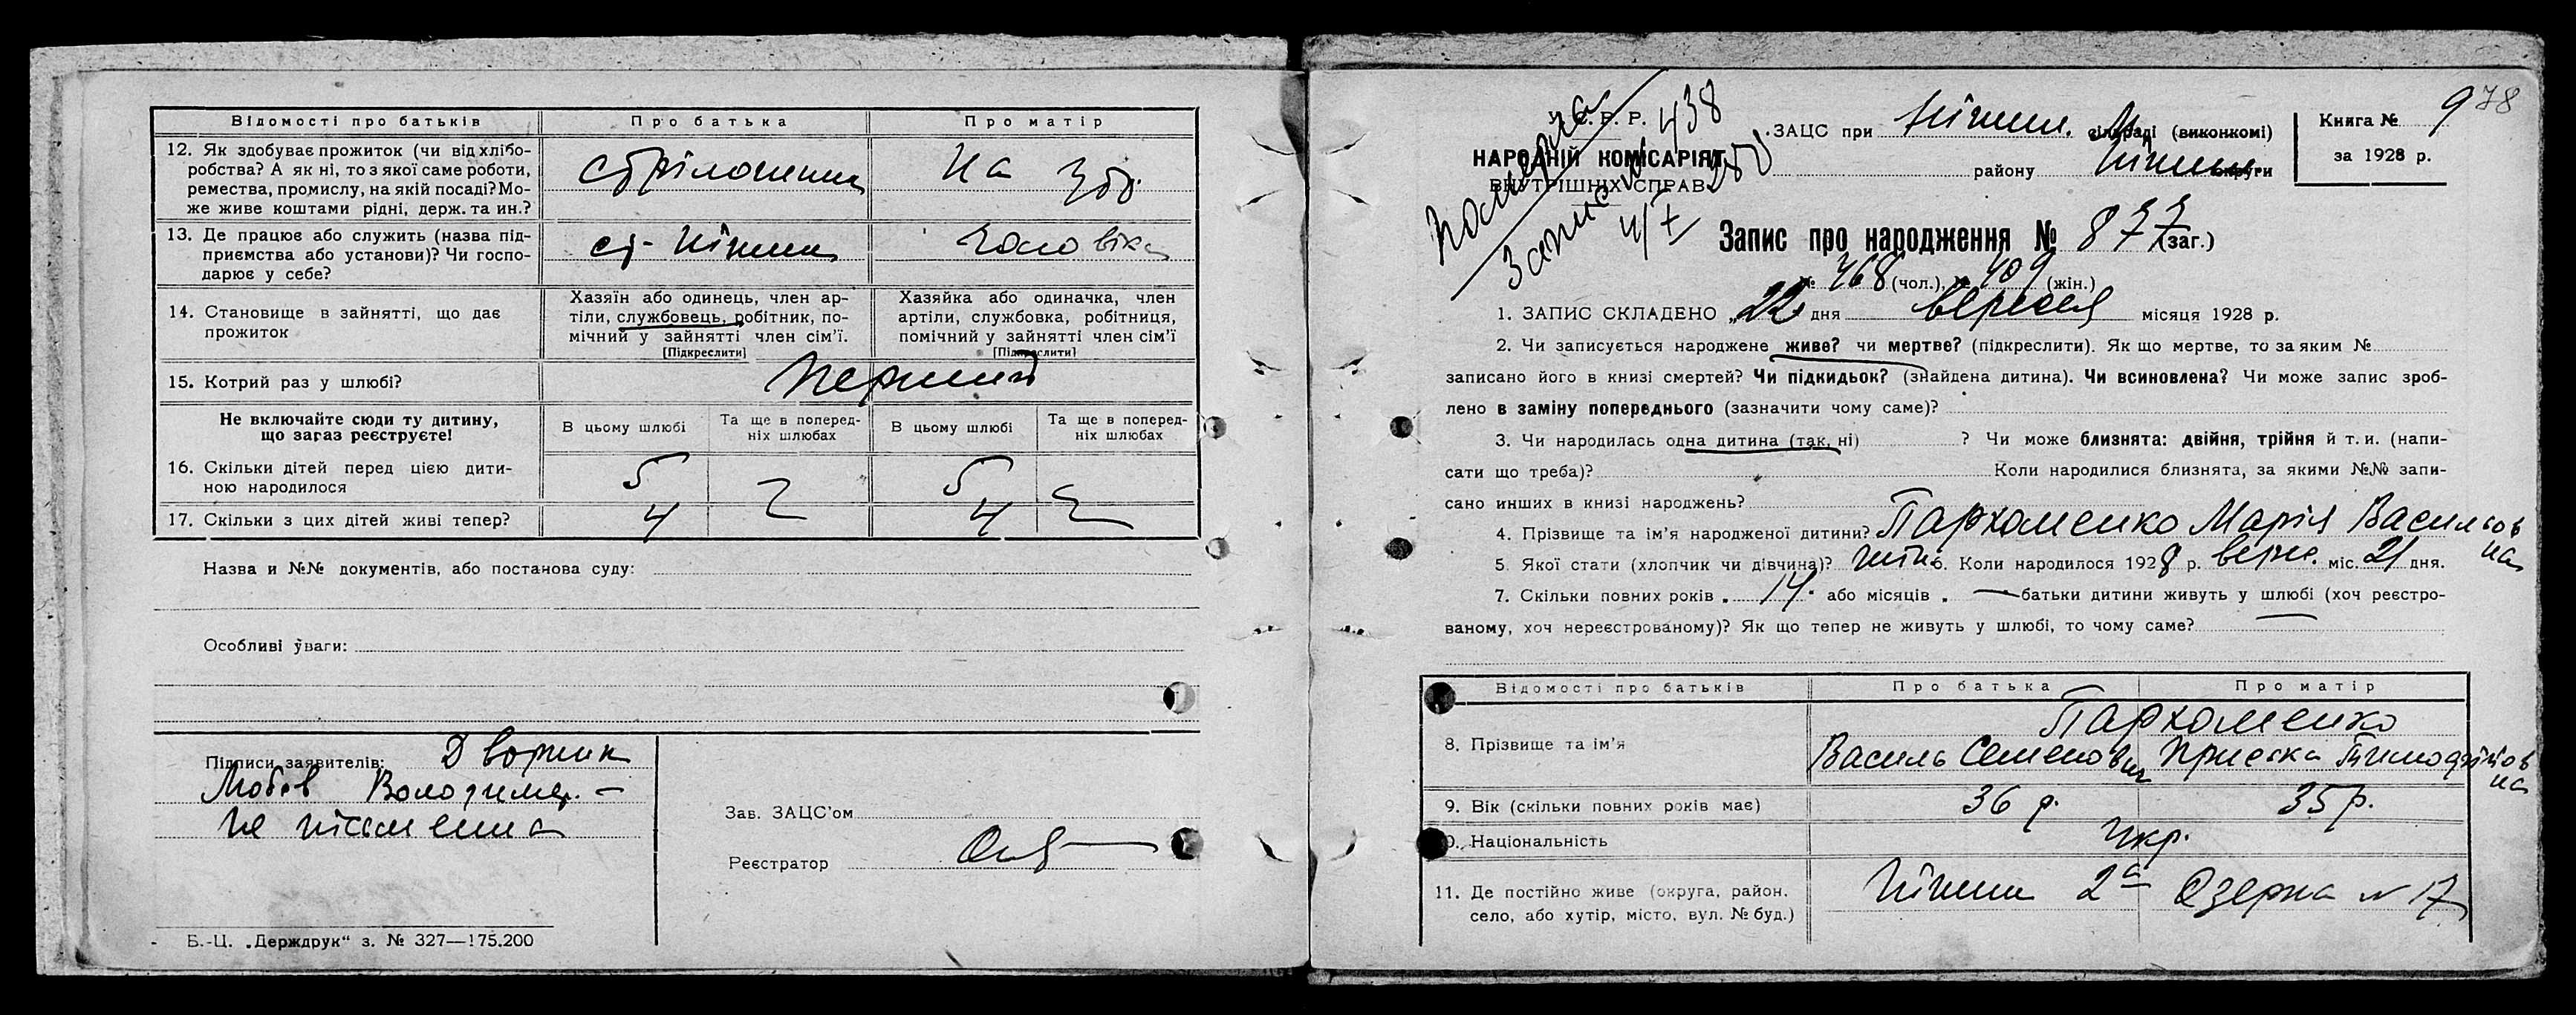 Відомості про батьків
Про батька
Про матір
12. Як здобуває прожиток (чи від хлібо-
робства? А як ні, то з якої саме роботи,
ремества, промислу, на якій посаді? Мо-
же живе коштами рідні, держ. та ин.?
стрілочник
На утр.
13. Де працює або служить (назва під-
приємства або установи)? Чи госпо-
дарює у себе?
ст. Ніжин
чоловіка
14. Становище в зайнятті, що дає
прожиток
Хазяїн або одинець, член ар-
тіли, службовець, робітник, по-
мічний у зайнятті член сім'ї.
[Підкреслити]
Хазяйка або одиначка, член
артіли, службовка, робітниця,
помічний у зайнятті член сім'ї
[Підкреслити]
15. Котрий раз у шлюбі?
Перший
Не включайте сюди ту дитину,
що зараз реєструєте!
В цьому шлюбі
Та ще в поперед-
ніх шлюбах
В цьому шлюбі
Та ще в поперед-
ніх шлюбах
16. Скільки дітей перед цією дити-
ною народилося
5
5
17. Скільки з цих дітей живі тепер?
4
4
Назва и №№ документів, або постанова суду:
Особливі ўваги:
Підписи заявителів: Дворник
Любов Володимер. –
не письменна
Зав. ЗАЦС'ом
Реєстратор
Б.-Ц. „Держдрук“ з. № 327—175.200
У. С. Р. Р.
НАРОДНІЙ КОМІСАРІЯТ
ВНУТРІШНІХ СПРАВ
Запис № 438
ЗАЦС при Ніжин. М. сільраді (виконкомі)
району Ніжин. округи
Книга № 9
за 1928 р.
78
Запис про народження № 877 (заг.)
№ 468 (чол.), № 409 (жін.)
1. ЗАПИС СКЛАДЕНО „22“ дня вересня місяця 1928 р.
2. Чи записується народжене живе? чи мертве? (підкреслити). Як що мертве, то за яким №
записано його в книзі смертей? Чи підкидьок? (знайдена дитина). Чи всиновлена? Чи може запис зроб-
лено в заміну попереднього (зазначити чому саме)?
3. Чи народилась одна дитина (так, ні) ? Чи може близнята: двійня, трійня й т. и. (напи-
сати що треба)? Коли народилися близнята, за якими №№ запи-
сано инших в книзі народжень?
4. Прізвище та ім'я народженої дитини? Пархоменко Марія Васильов
на
5. Якої стати (хлопчик чи дівчина)? жін. 6. Коли народилося 1928 р. верес. міс. 21 дня.
7. Скільки повних років 14. або місяців — батьки дитини живуть у шлюбі (хоч реєстро-
ваному, хоч нереєстрованому)? Як що тепер не живуть у шлюбі, то чому саме?
Відомості про батьків
Про батька
Про матір
8. Прізвище та ім'я
Пархоменко
Василь Семенович
Приська Тимофіїв
на
9. Вік (скільки повних років має)
36 р.
35 р.
10. Національність
Укр.
11. Де постійно живе (округа, район,
село, або хутір, місто, вул. № буд.)
Ніжин 2а Озерна № 17